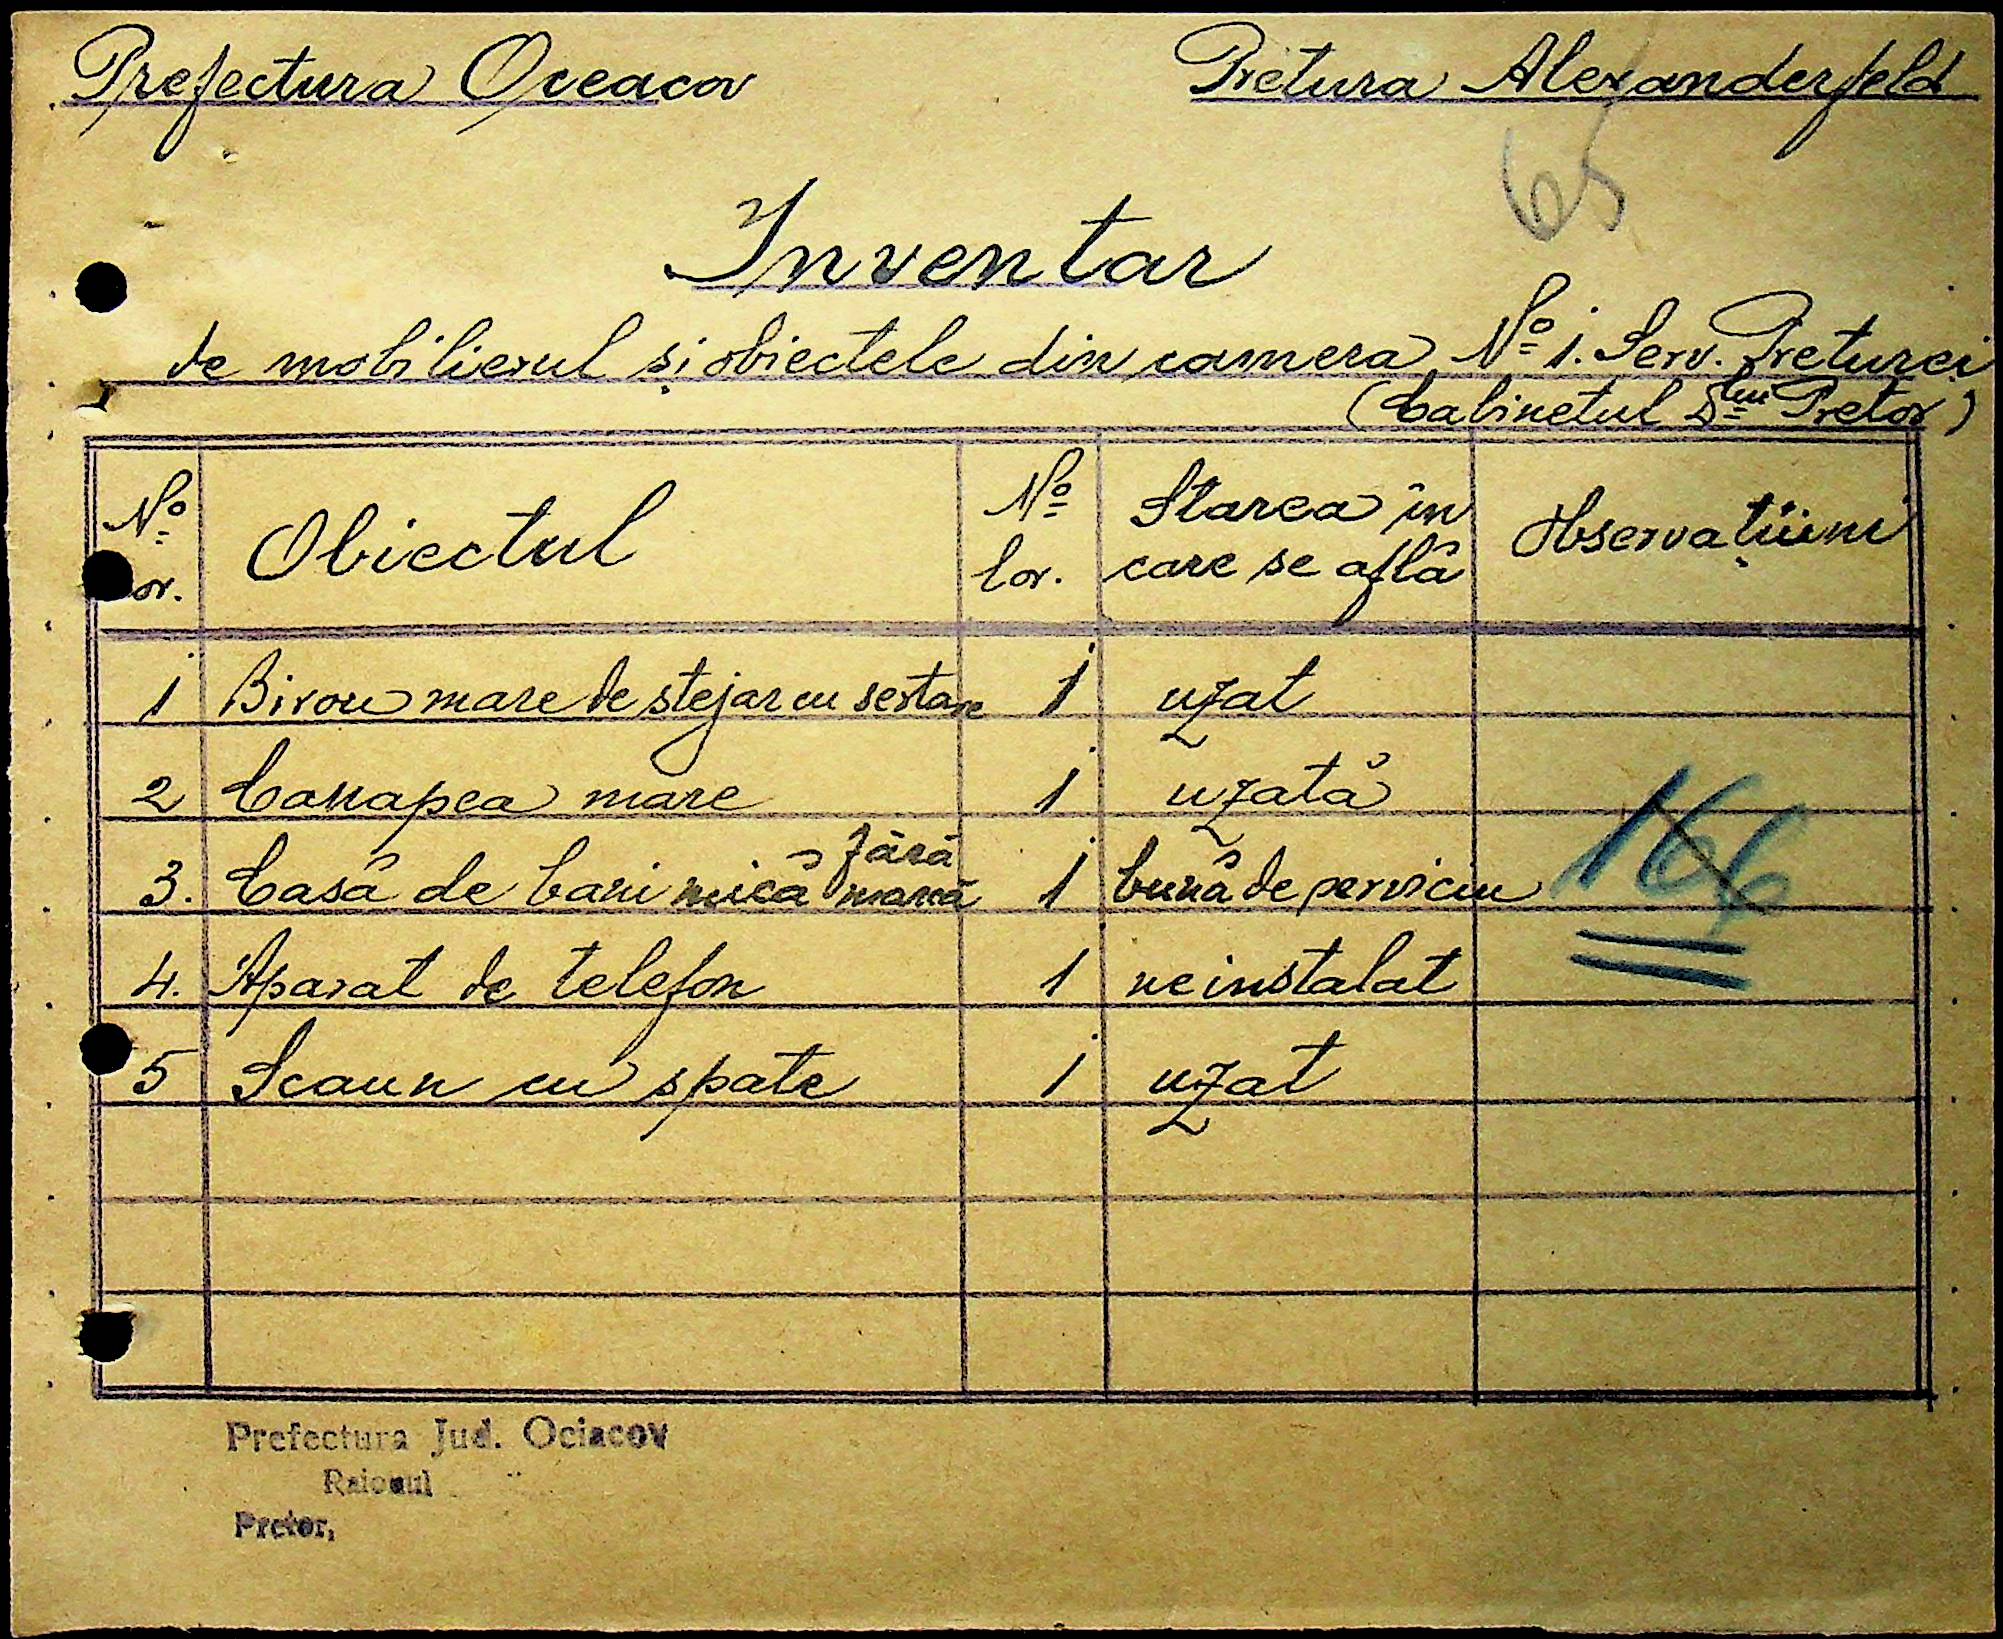 Prefectura Oceacov Pretura Alexanderfeld
65
Inventar
de mobilierul și obiectele din camera No 1. Serv. Preturei
(Cabinetul Dlui Pretor)
No or. Obiectul No lor. Starea în care se află Observațiuni
1 Birou mare de stejar cu sertare 1 uzat
2 Canapea mare 1 uzată
3. Casă de bani mică fără marcă 1 bună de serviciu
166
4. Aparat de telefon 1 neinstalat
5 Scaun cu spate 1 uzat
Prefectura Jud. Ociacov
Raionul
Pretor,